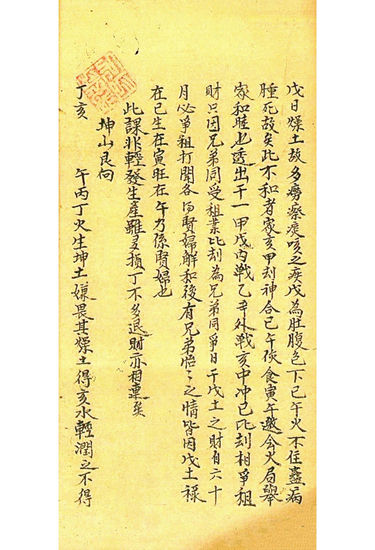 戊日燥土故多癆瘵痰咳之疾戊為肚腹包下巳午火不住蠱病
腫死故矣此不和者家亥甲刦神合巳午夜食寅午邀合火局舉
家和睦也透出干一甲戊內戰乙辛外戰亥中冲巳比刦相爭租
財只因兄弟同受租業比刦為兄弟同爭日午戊土之財自六十
月必爭租打鬧各得賢婦解和後有兄弟怡之之情皆因戊土祿
在巳生在寅旺在午乃係賢婦也
此課非輕發生產雖多損丁不多退財亦相稟矣
坤山艮向
丁亥 午丙丁火生坤土嫌畏其燥土得亥水輕潤之不得